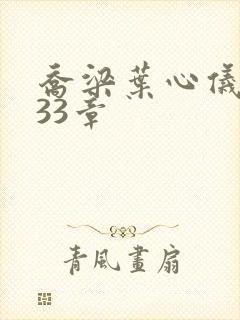 乔梁葉心儀
33章
青風畫扇